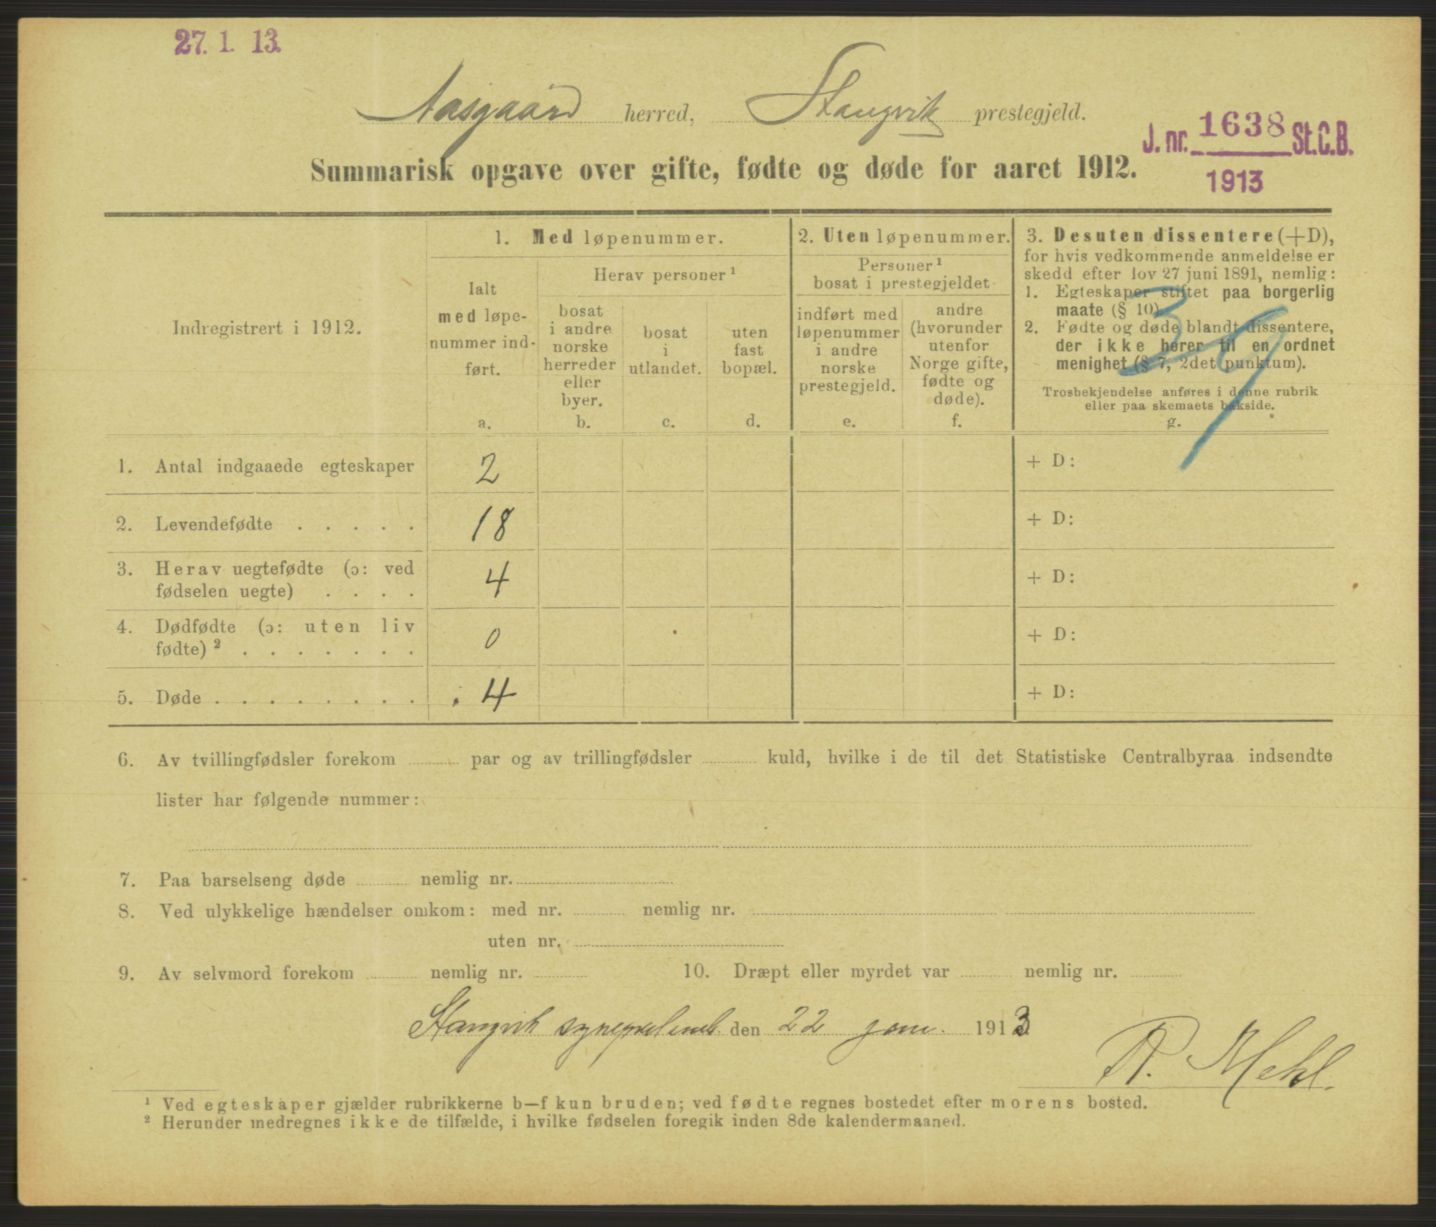 27. 1. 13.
Aasgaard herred, Stangvik prestegjeld.
J. nr. 1638 St.C.B.
1913
Summarisk opgave over gifte, fødte og døde for aaret 1912.
Indregistrert i 1912.
1. Med løpenummer.
Ialt
med løpe-
nummer ind-
ført.
a.
Herav personer ¹
bosat
i andre
norske
herreder
eller
byer.
b.
bosat
i
utlandet.
c.
uten
fast
bopæl.
d.
2. Uten løpenummer.
Personer ¹
bosat i prestegjeldet
indført med
løpenummer
i andre
norske
prestegjeld.
e.
andre
(hvorunder
utenfor
Norge gifte,
fødte og
døde).
f.
3. Desuten dissentere (+D),
for hvis vedkommende anmeldelse er
skedd efter lov 27 juni 1891, nemlig:
1. Egteskaper stiftet paa borgerlig
maate (§ 10).
2. Fødte og døde blandt dissentere,
der ikke hører til en ordnet
menighet (§ 7, 2det punktum).
Trosbekjendelse anføres i denne rubrik
eller paa skemaets bakside.
g.
1. Antal indgaaede egteskaper 2 + D:
2. Levendefødte . . . . . 18 + D:
3. Herav uegtefødte (ɔ: ved
fødselen uegte) . . . . 4 + D:
4. Dødfødte (ɔ: uten liv
fødte) ² . . . . . . . 0 + D:
5. Døde . . . . . . . . 4 + D:
6. Av tvillingfødsler forekom par og av trillingfødsler kuld, hvilke i de til det Statistiske Centralbyraa indsendte
lister har følgende nummer:
7. Paa barselseng døde nemlig nr.
8. Ved ulykkelige hændelser omkom: med nr. nemlig nr.
uten nr.
9. Av selvmord forekom nemlig nr. 10. Dræpt eller myrdet var nemlig nr.
Stangvik den 22 jan. 1913
R. Mehl.
¹ Ved egteskaper gjælder rubrikkerne b—f kun bruden; ved fødte regnes bostedet efter morens bosted.
² Herunder medregnes ikke de tilfælde, i hvilke fødselen foregik inden 8de kalendermaaned.